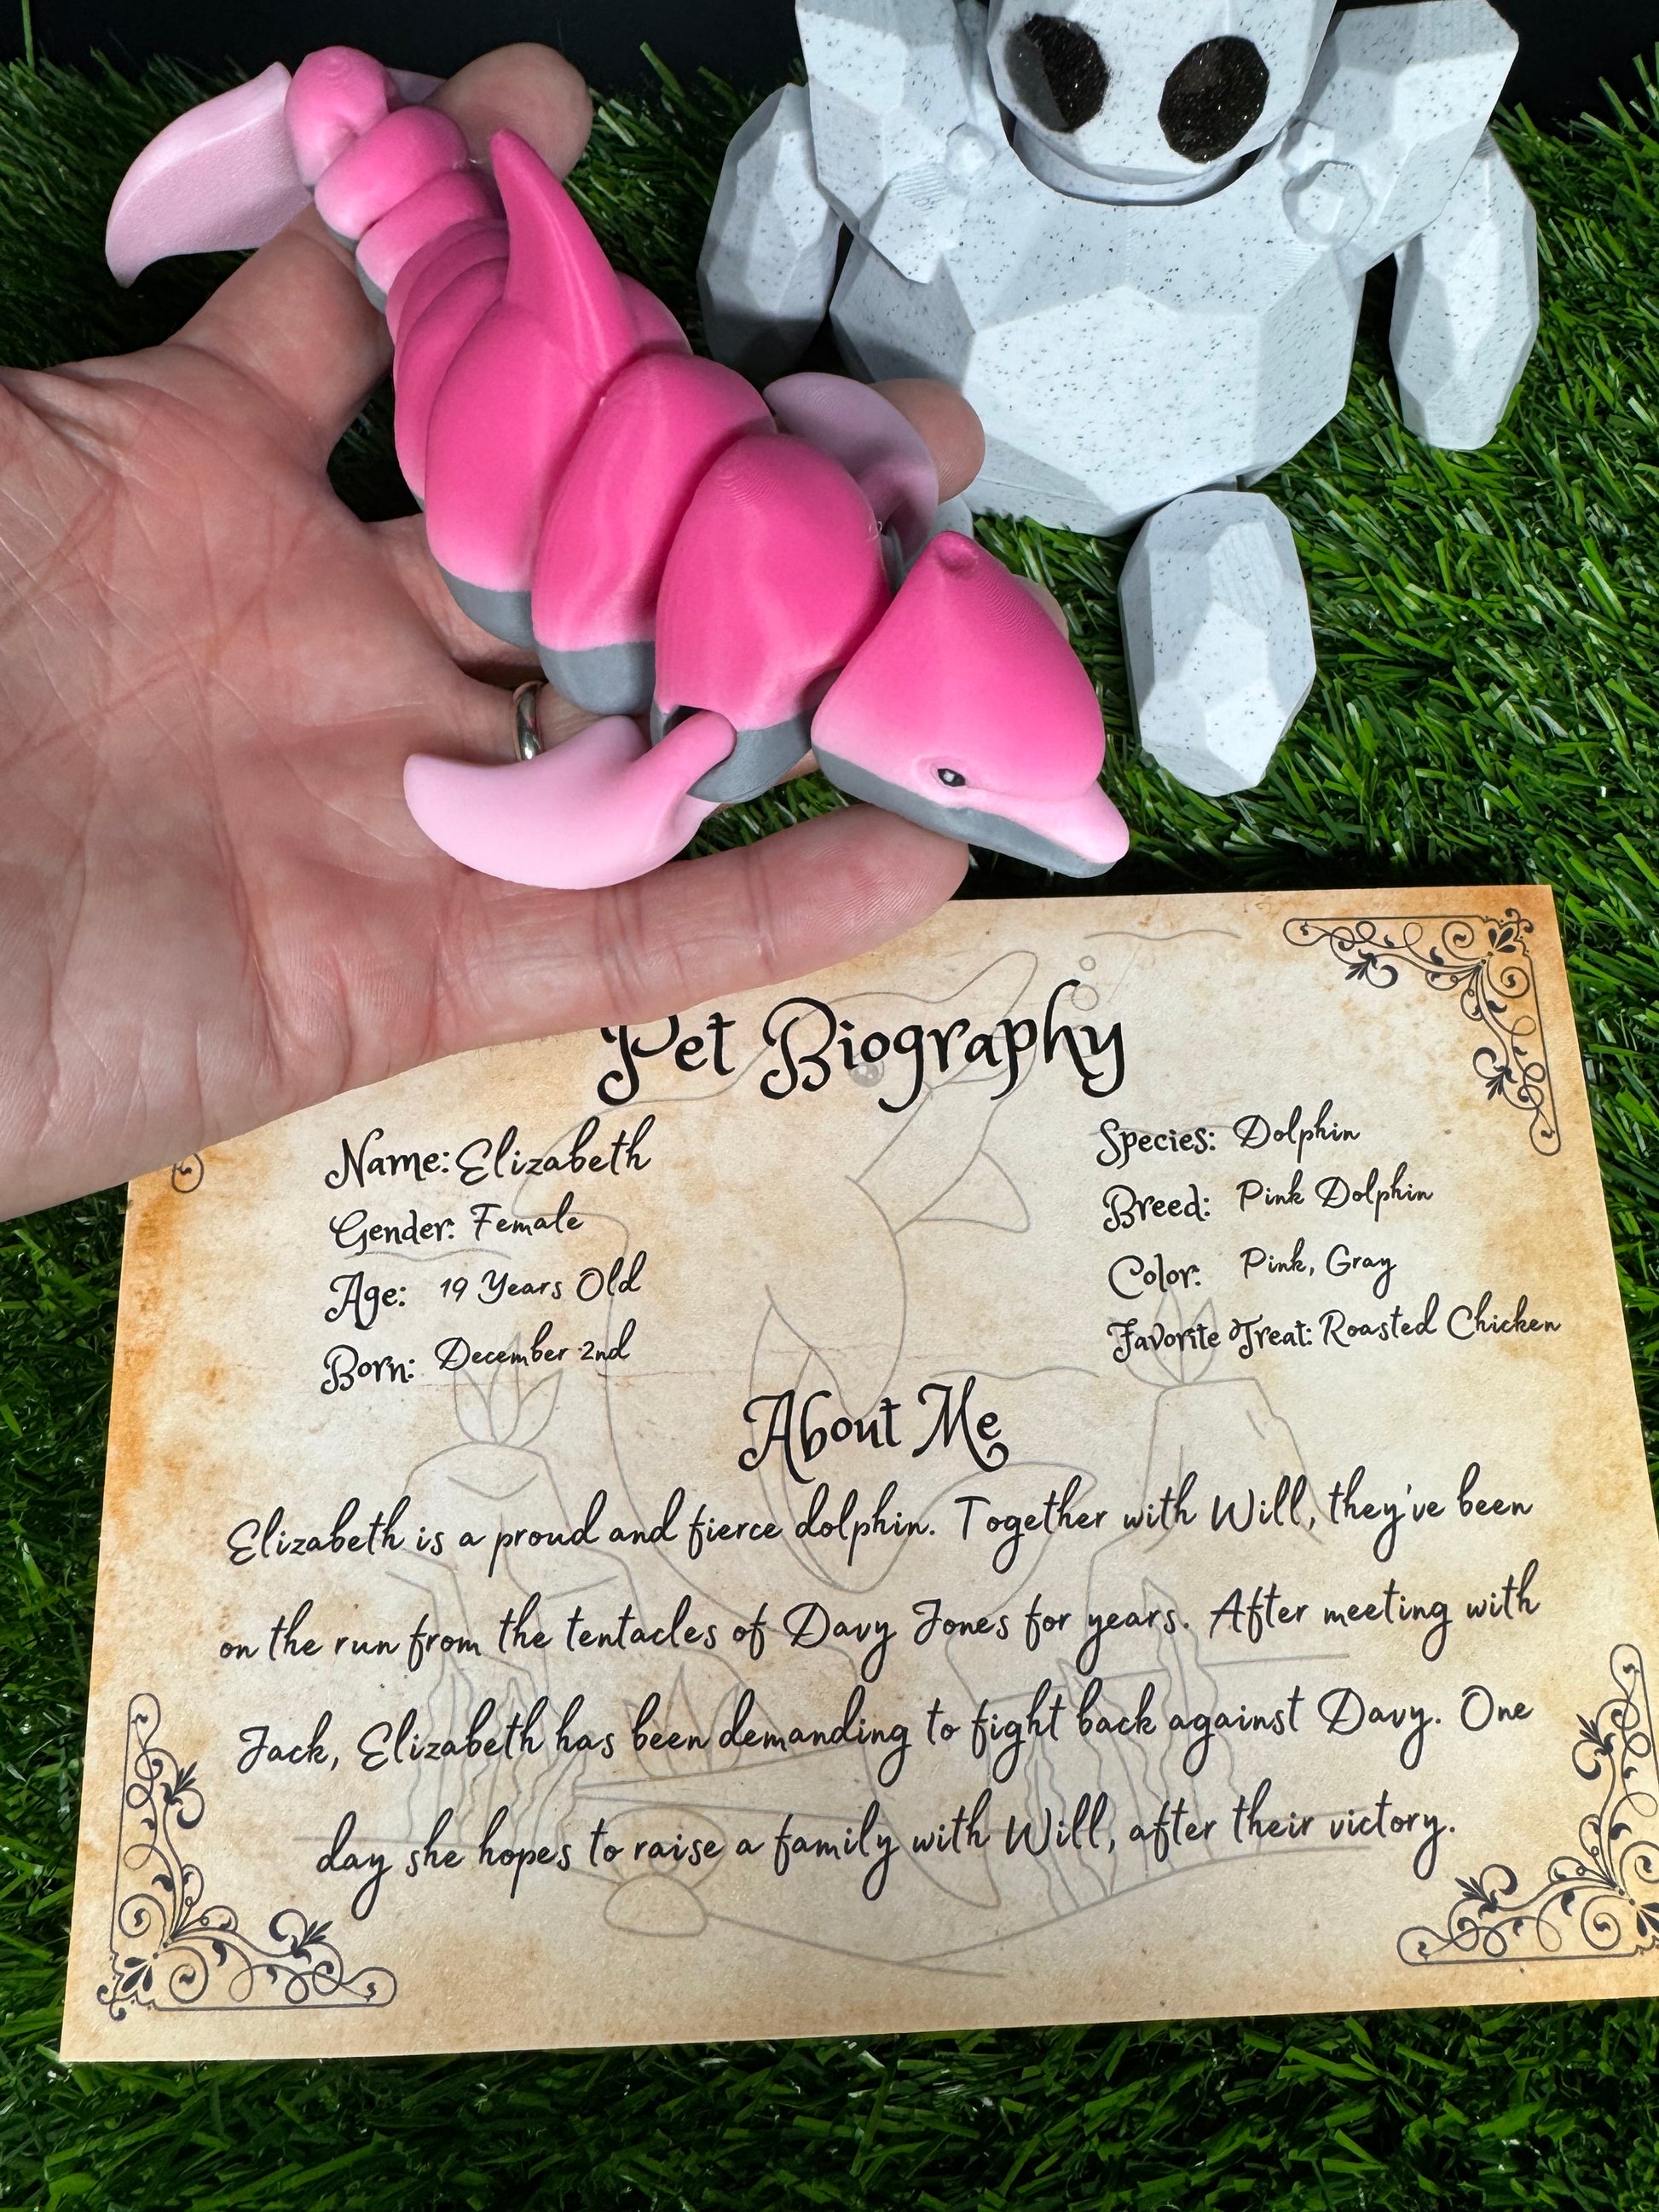 Pet Biography
Name: Elizabeth
Gender: Female
Age: 19 Years Old
Born: December 2nd
Species: Dolphin
Breed: Pink Dolphin
Color: Pink, Gray
Favorite Treat: Roasted Chicken
About Me
Elizabeth is a proud and fierce dolphin. Together with Will, they've been
on the run from the tentacles of Davy Jones for years. After meeting with
Jack, Elizabeth has been demanding to fight back against Davy. One
day she hopes to raise a family with Will, after their victory.